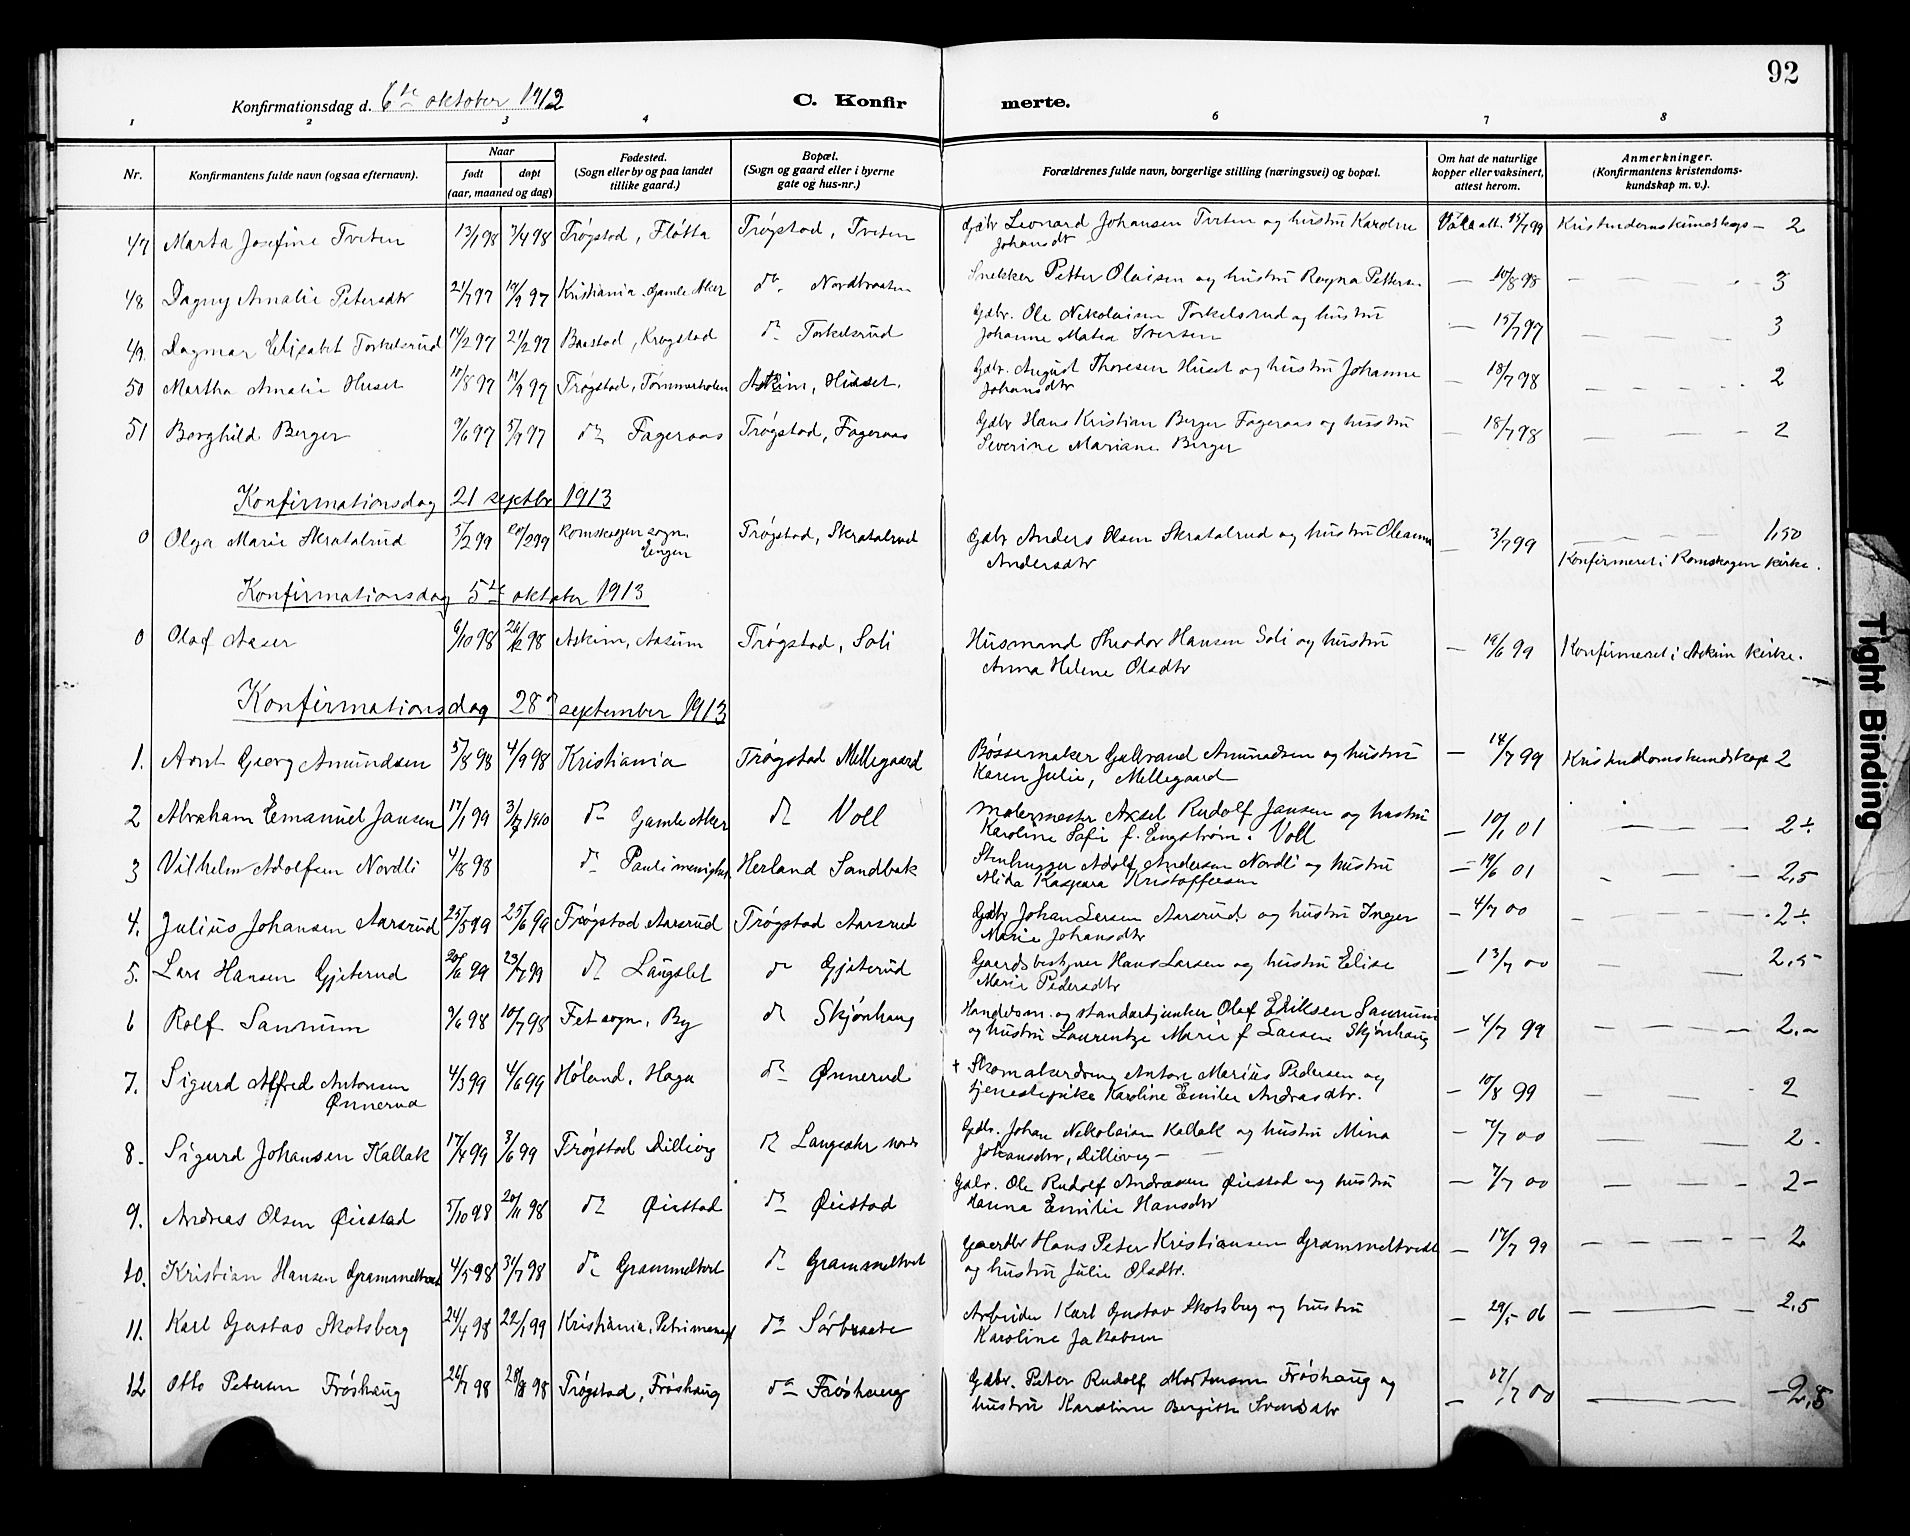 92
Konfirmationsdag d. 6te oktober 1912 C. Konfirmerte.
1 2 3 4 5 6 7 8
Nr. Konfirmantens fulde navn (ogsaa efternavn). Naar født døpt (aar, maaned og dag) Fødested. (Sogn eller by og paa landet tillike gaard.) Bopæl. (Sogn og gaard eller i byerne gate og hus-nr.) Forældrenes fulde navn, borgerlige stilling (næringsvei) og bopæl. Om hat de naturlige kopper eller vaksinert, attest herom. Anmerkninger. (Konfirmantens kristendomskundskap m. v.).
47 Marta Josefine Tveten 13/1 98 3/4 98 Trøgstad, Fløtta Trøgstad, Tveten Gdbr Leonard Johansen Tveten og hustru Karoline Johansdtr Vaks att. 15/7 99 Kristendomskundskap – 2
48 Dagny Amalie Petersdtr 21/7 97 19/9 97 Kristiania, Gamle Aker do Nordbraaten Snekker Petter Olaisen og hustru Ragna Petterse – 10/8 98 – – – 3
49 Dagmar Elisabet Torkelsrud 14/2 97 21/2 97 Baastad, Krogstad do Torkelsrud Gdbr. Ole Nikolaisen Torkelsrud og hustru Johanne Matea Iversen – 15/7 97 – – – 3
50 Martha Amalie Huset 17/8 97 19/9 97 Trøgstad, Tømmerholen Askim, Huset. Gdbr. August Thoresen Huset og hustru Johanne Johansdtr – 18/7 98 – – – 2
51 Borghild Berger 9/6 97 5/9 97 do Fageraas Trøgstad, Fageraas Gdbr Hans Kristian Berger Fageraas og hustru Severine Mariane Berger – 18/7 98 – – – 2
Konfirmationsdag 21 septbr 1913
0 Olga Marie Skratalrud 5/2 99 20/2 99 Romskogen sogn. Engen Trøgstad, Skratalrud Gdbr Anders Olsen Skratalrud og hustru Oleanna Andersdtr – 3/7 99 – – – 1,50 Konfirmeret i Romskogen kirke.
Konfirmationsdag 5te oktober 1913
0 Olaf Aaser 6/10 98 26/12 98 Askim, Aasum Trøgstad, Soli Husmand Theodor Hansen Soli og hustru Anna Helene Olsdtr – 19/6 99 Konfirmeret i Askim kirke.
Konfirmationsdag 28de september 1913
1. Arnt Georg Amundsen 5/8 98 4/9 98 Kristiania Trøgstad Mellegaard Bøssemaker Gulbrand Amundsen og hustru Karen Julie, Mellegaard – 14/7 99 Kristendomskundskap 2
2 Abraham Emanuel Jansen 17/1 99 3/7 1910 do Gamle Aker do Voll Malermester Axsel Rudolf Jansen og hustru Karoline Sofie f. Engstrøm. Voll – 10/1 01 – – 2÷
3 Vilhelm Adolfsen Nordli 4/8 98 do Pauli menighet Herland Sandbak Stenhugger Adolf Andersen Nordli og hustru Alida Kaspara Kristoffersen – 19/6 01 – – – 2,5
4. Julius Johansen Aarsrud 25/5 99 25/6 99 Trøgstad Aarsrud Trøgstad Aarsrud Gdbr Johan Larsen Aarsrud og hustru Inger Marie Johansdtr – 4/7 00 – – – 2÷
5. Lars Hansen Gjeterud 20/6 99 23/7 99 do Langslet do Gjeterud Gaardsbestyrer Hans Larsen og hustru Elise Marie Pedersdtr – 13/7 00 – – – 2,5
6 Rolf Sannum 9/6 98 10/7 98 Fet sogn, By do Skjønhaug Handelsm. og standartjunker Olaf Eriksen Sannum og hustru Laurentze Marie f Larsen Skjønhaug – 4/7 99 – – – 2.–
7. Sigurd Alfred Antonsen Ønnerud 4/3 99 4/6 99 Høland, Haga do Ønnerud † Skomakerdreng Anton Marius Pedersen og tjenestepike Karoline Emilie Andreasdtr. – 10/8 99 – – – 2
8. Sigurd Johansen Kallak 17/4 99 3/6 99 Trøgstad Dillevig do Langsæter nordr Gdbr. Johan Nikolaisen Kallak og hustru Mina Johansdtr, Dillevig – – 7/7 00 – – – 2.
9. Andreas Olsen Øiestad 5/10 98 20/11 98 do Øiestad do Øiestad Gdbr. Ole Rudolf Andreasen Øiestad og hustru Hanna Emilie Hansdtr – 7/7 00 – – – 2–
10. Kristian Hansen Grammeltvet 4/5 98 31/7 98 do Grammeltvet do Grammeltvet Gaardbr Hans Peter Kristiansen Grammeltvedt og hustru Julie Olsdtr. – 17/7 99 – – – 2
11. Karl Gustav Skotsberg 24/4 98 22/1 99 Kristiania, Petri menigh do Sørbraate Arbeider Karl Gustav Skotsberg og hustru Karoline Jakobsen – 29/5 06 – – – 2,5
12 Otto Petersen Frøshaug 26/7 98 28/8 98 Trøgstad, Frøshaug do Frøshaug Gdbr. Peter Rudolf Mortensen Frøshaug og hustru Karoline Bergitte Svensdtr – 17/7 00 – – – 2,5
Tight Binding